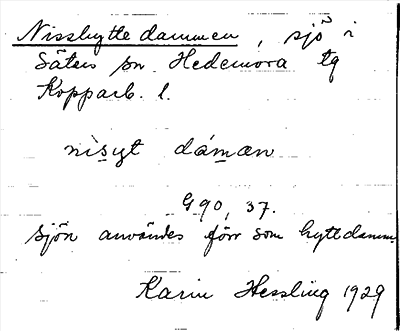 Nisshyttedammen, sjö i
Säters sn Hedemora tg
Kopparb. l.
nisyt dámæn
G 90, 37.
sjön användes förr som hyttdamm.
Karin Hessling 1929